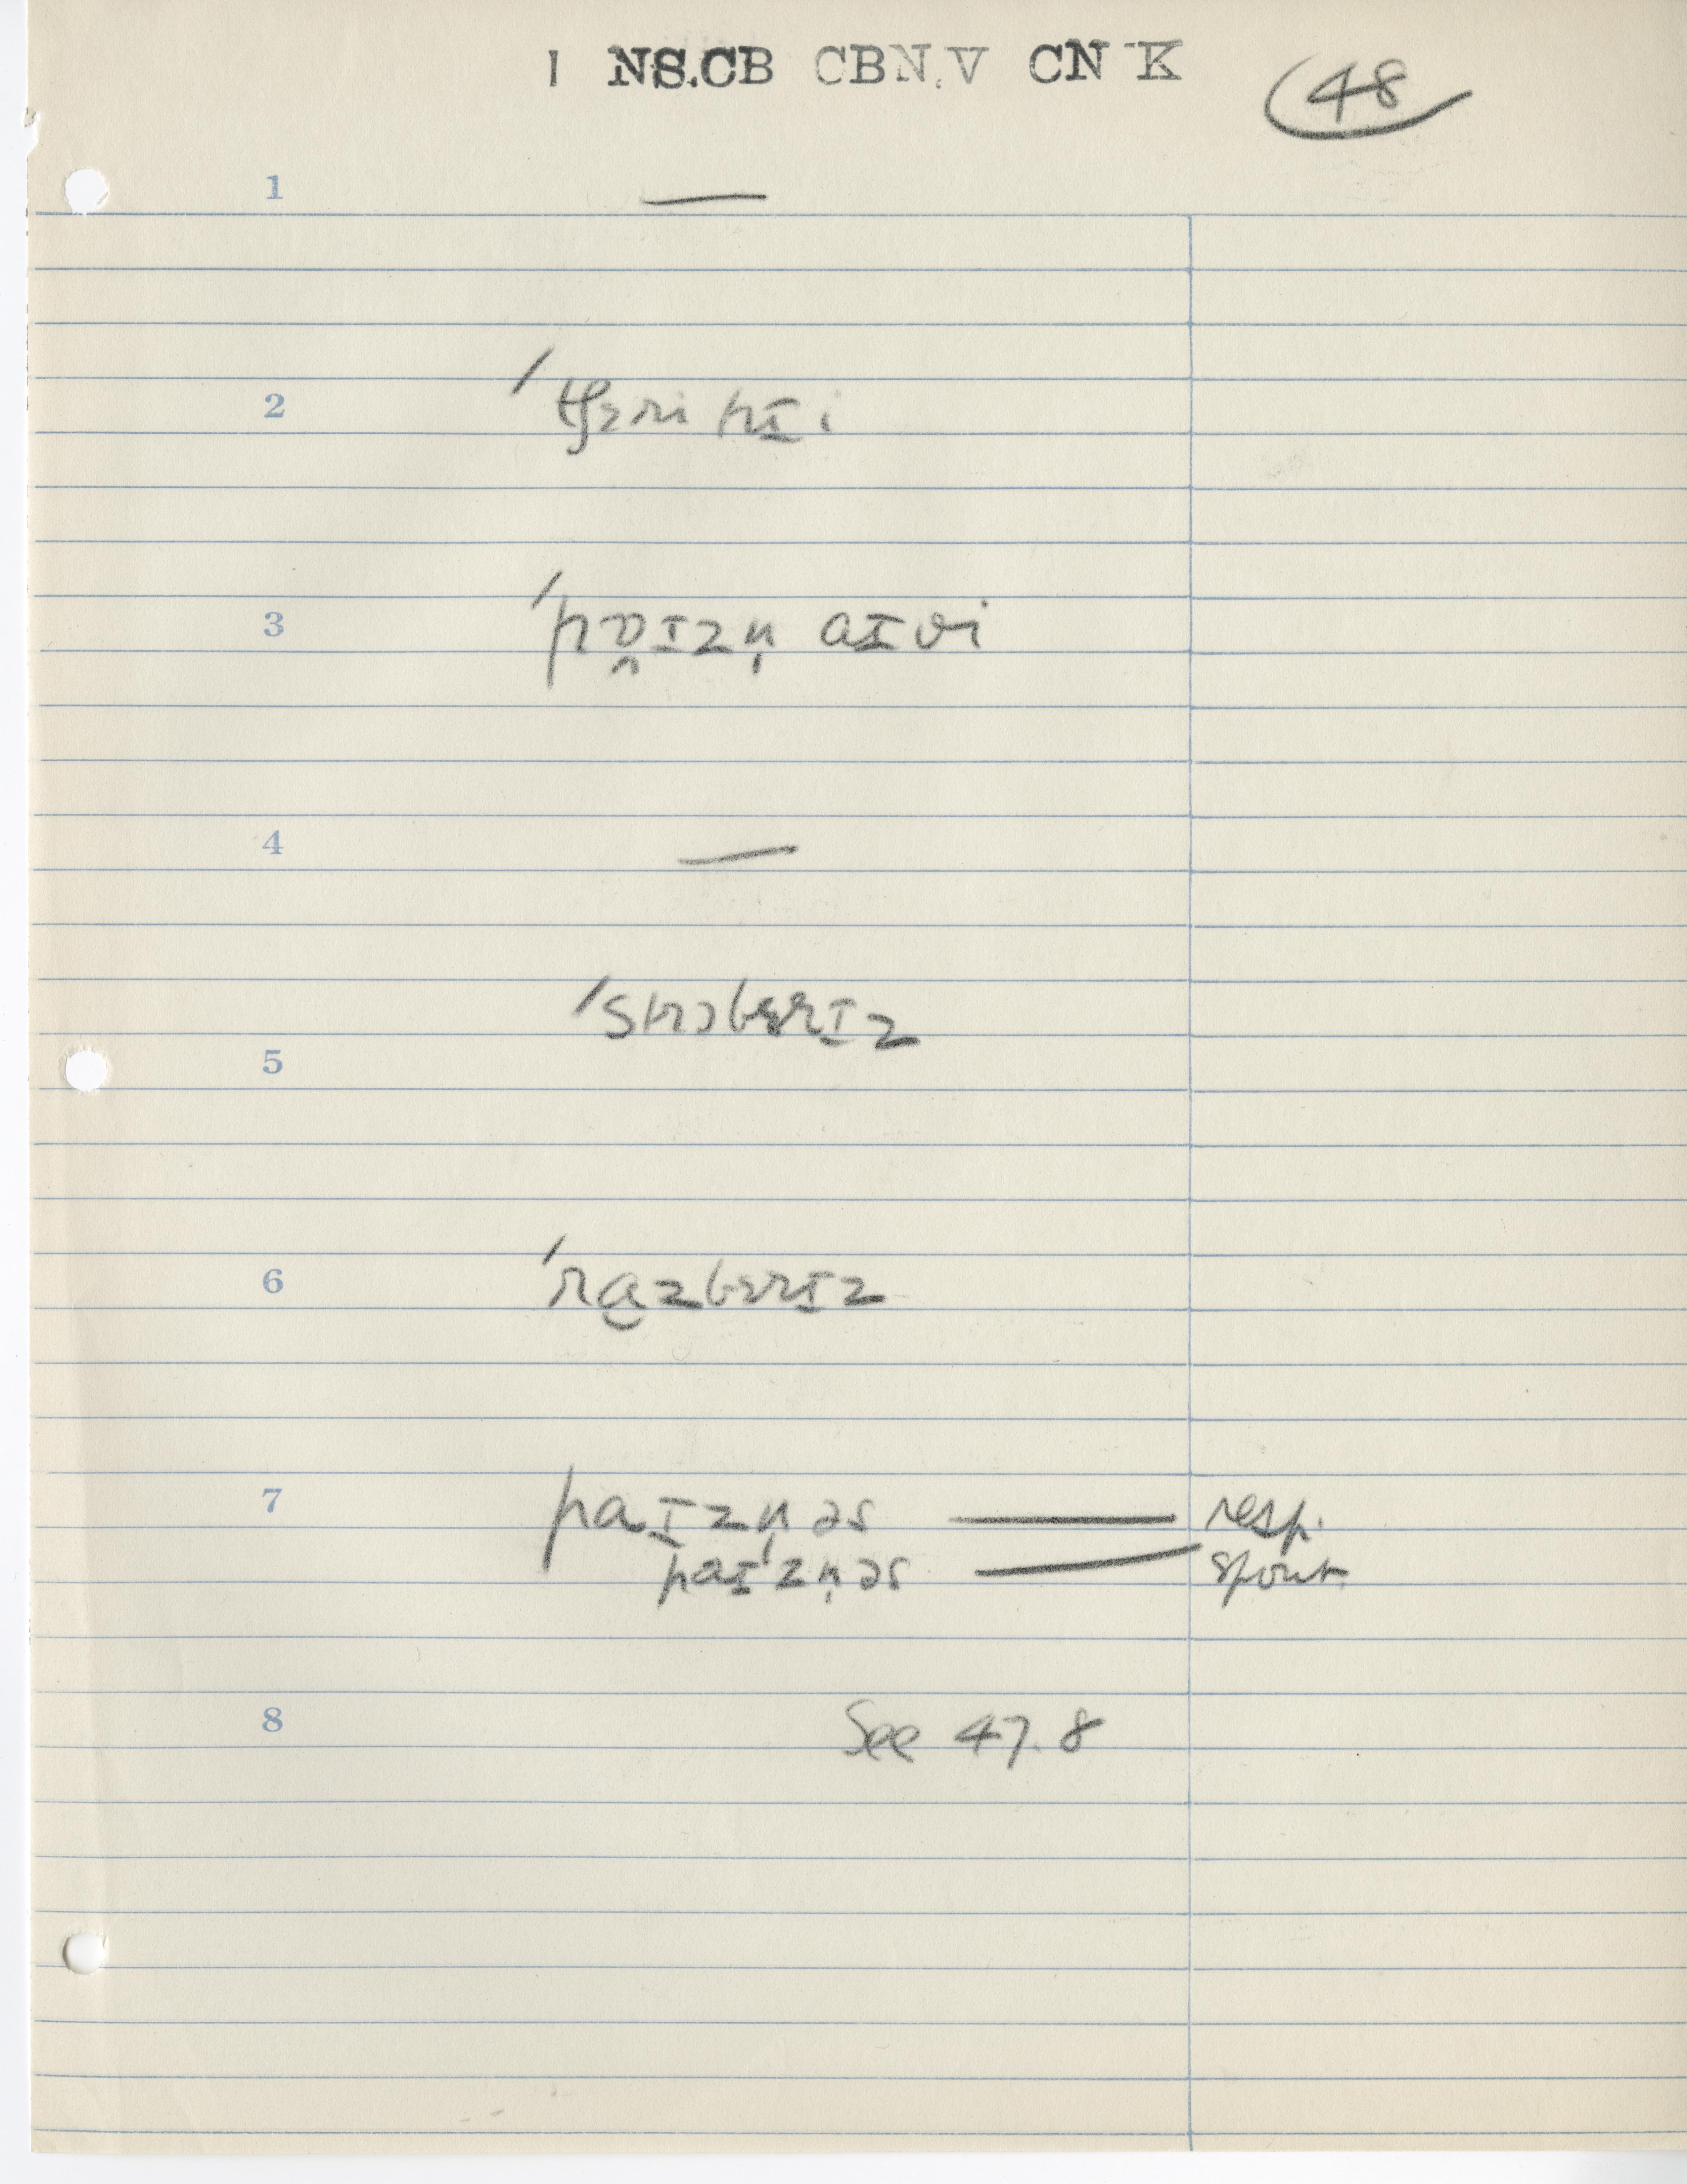 I NS.CB CBN.V CN K
48
1 —
2 ˈtʃɛri trɪi
3 ˈpɒ̯ɪzn̩ aɪvi
4 —
5 ˈstrɔbɛrɪz
6 ˈra̮zbɛrɪz
7 paɪzn̩əs — resp.
paɪzn̩əs — spont.
8 See 47.8